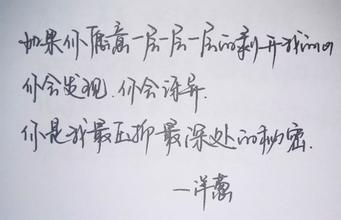 如果你愿意一层一层一层的剥开我的心
你会发现.你会讶异.
你是我最压抑最深处的秘密.
—洋葱